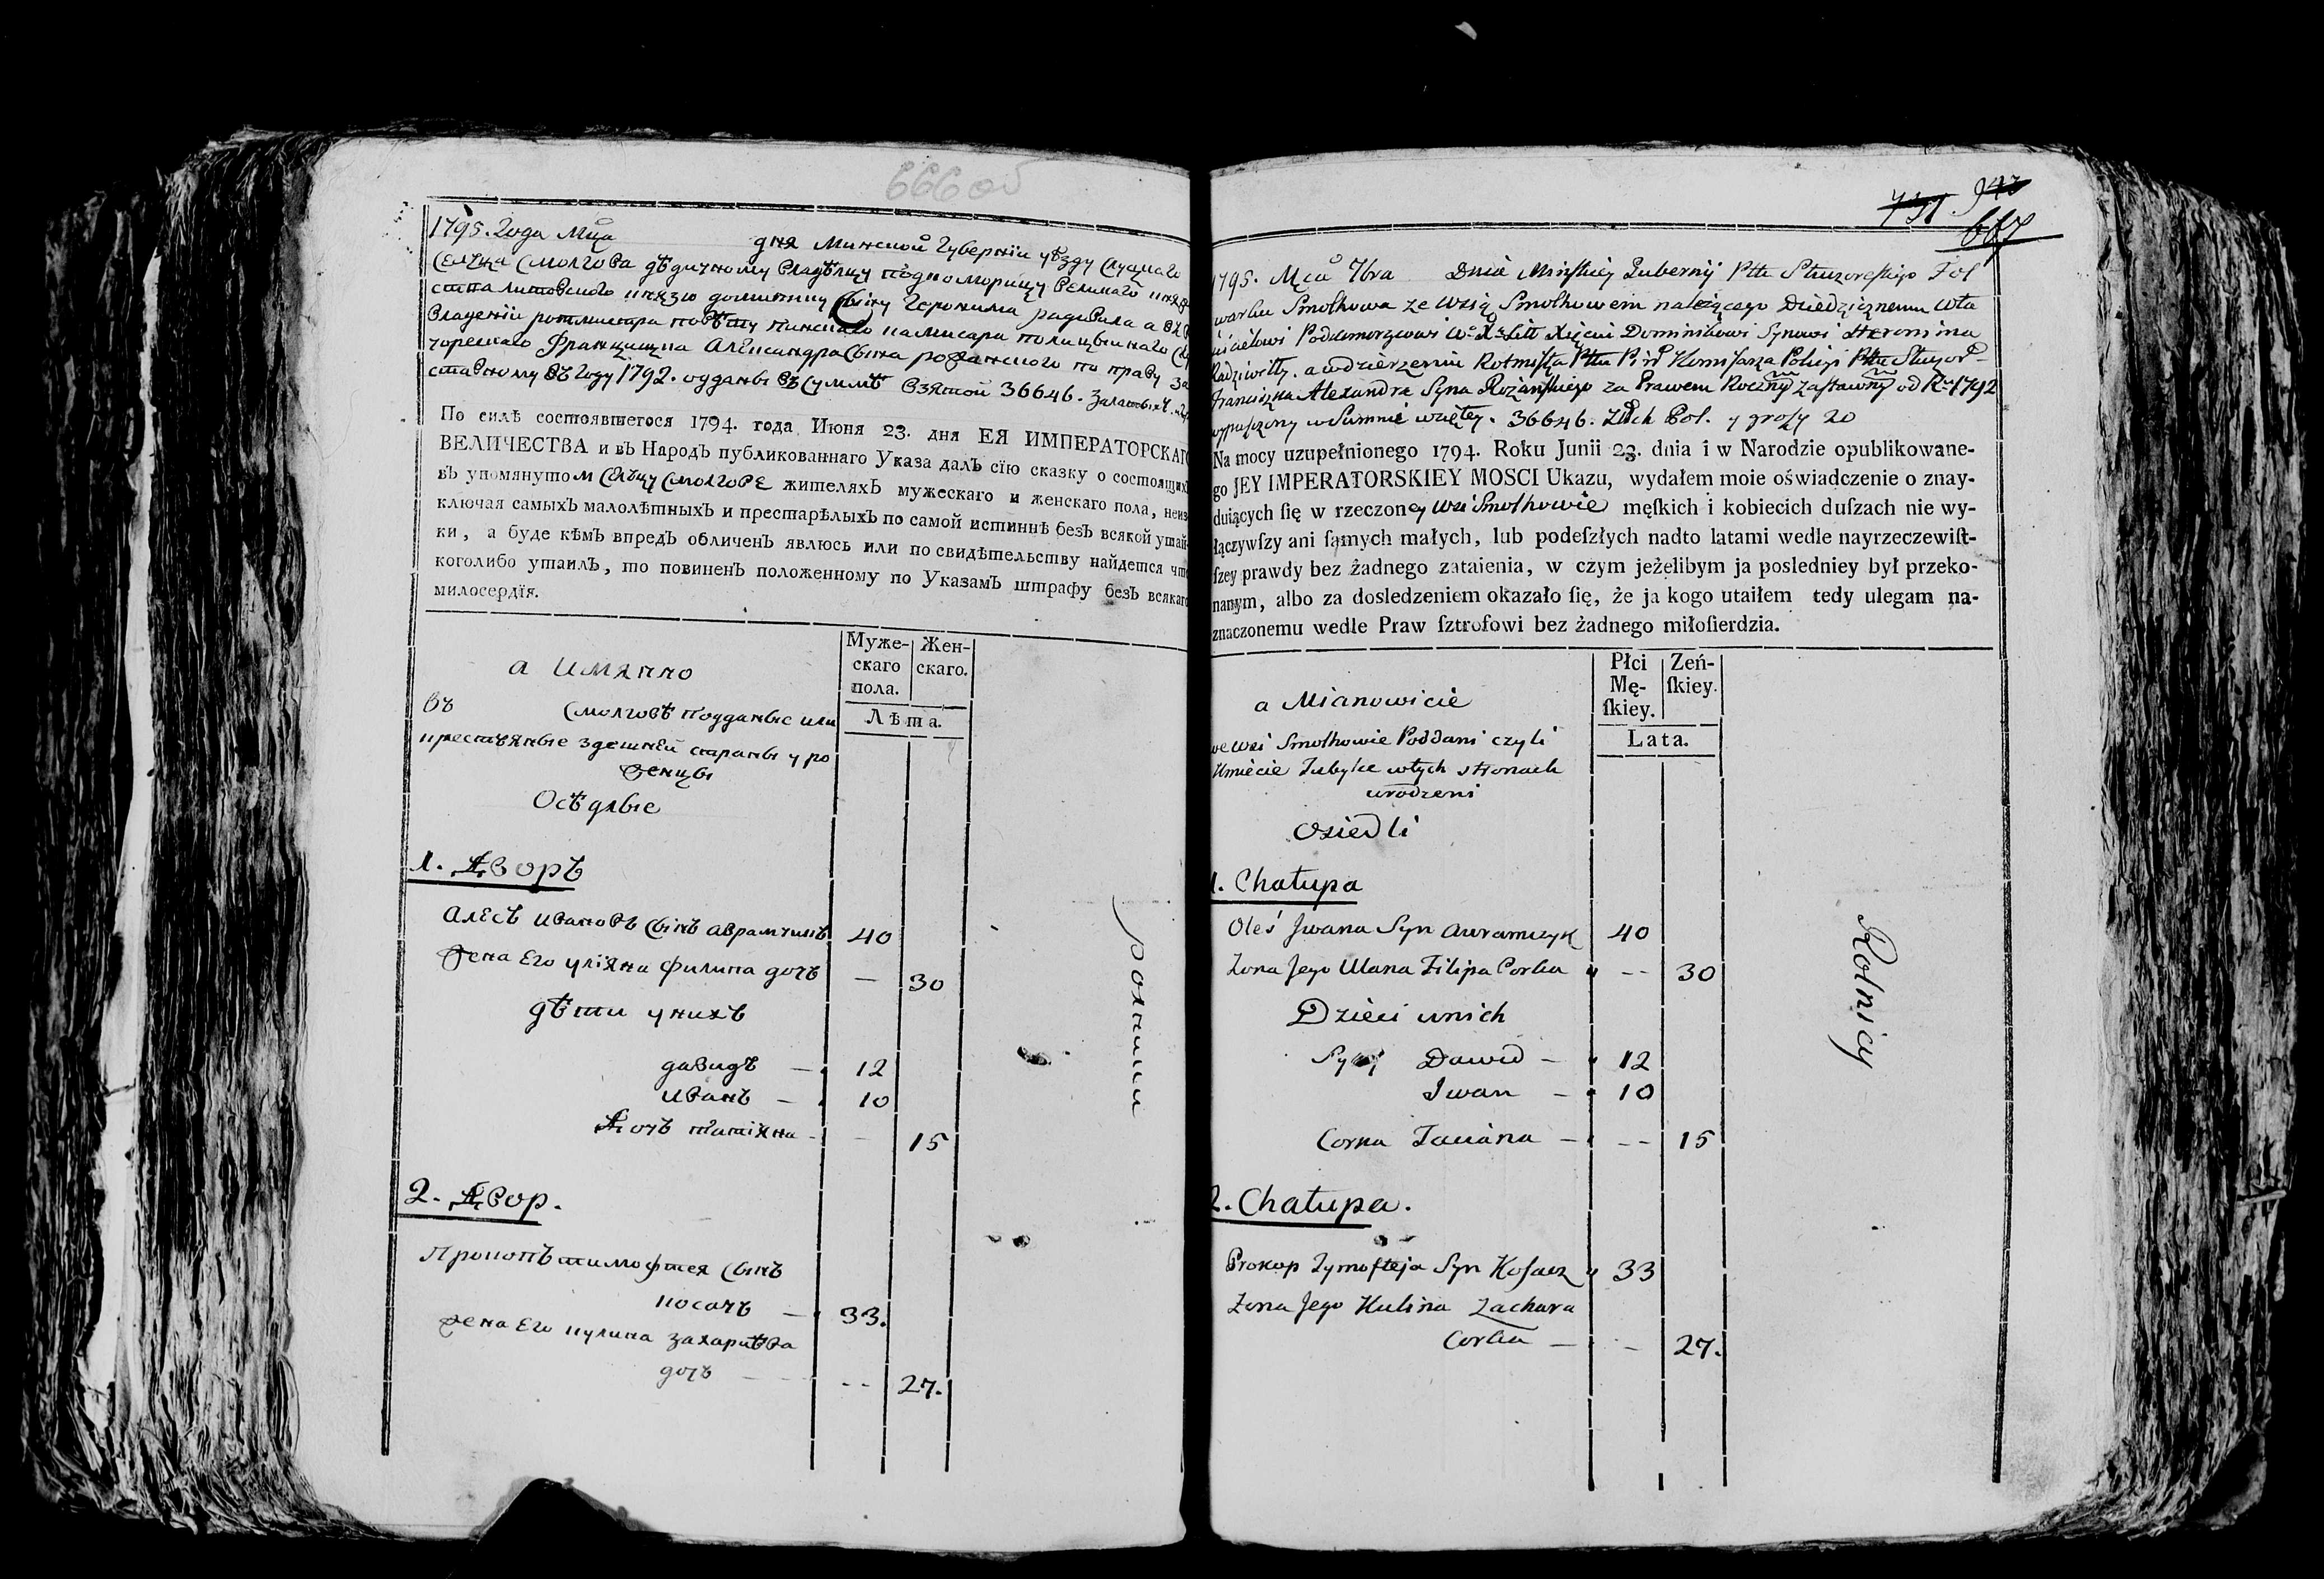 666об
1795. Года Мца дня Минской Губерніи уѣзду Слуцкаго
Селца Смолгова дѣдичному владѣлцу подкоморицу Великаго княз
ства литовского князю доминику Сыну Геронима радивила а въ
владеніи ротмистра повѣту пинского камисара полицыйнаго
чорескаго Францишка Александра Сына рожанского по праву за
ставному въ году 1792. отданы въ суммѣ взятой 36646.
По силѣ состоявшегося 1794. года Июня 23. дня ЕЯ ИМПЕРАТОРСКАГО
ВЕЛИЧЕСТВА и въ Народъ публикованнаго Указа далъ сїю сказку о состоящихъ
въ упомянутом Селцу Смолгове жителяхъ мужескаго и женскаго пола, неиз
ключая самыхъ малолѣтныхъ и престарѣлыхъ по самой истиннѣ безъ всякой утай-
ки, а буде кѣмъ впредъ обличенъ явлюсь или по свидѣтельству найдется что
коголибо утаилъ, то повиненъ положенному по Указамъ штрафу безъ всякаго
милосердїя.
а имянно
Муже-
скаго
пола.
Жен-
скаго.
Лѣта.
въ Смолговѣ подданые или
крестьяные здешней стараны уро
женцы
Осѣдлые
1. Дворъ
Алесь Ивановъ Сынъ аврамчикъ 40
жена Его уліяна филипа дочь — 30
дѣти у нихъ
давидъ — 12
иванъ — 10
Дочь татіяна - — 15
2. Двор.
Прокопъ тимофтея Сынъ
косачъ — 33.
жена Его кулина захарѣва
дочь — -- 27.
ролники
751 943
667
1795. Mca 7bra Dnia Minſkiey Gubernij Pttu Słuzoreſkiego Fol
warku Smolhowa ze wsią Smolhowem należącego Dziedzicznemu Wła
ścicielowi Podkomorzycowi W. X. Litt Xięciu Dominikowi Synowi Heronima
Radziwiłły. a w dzierzeniu Rotmiſtza Pttu Piń Komiſarza Policyi Pttu Słuzor
Franciszka Alexandra Syna Rożanſkiego za Prawem Roczny zaſtawny od Rᵘ 1792
wypuſzczony w Summie wziętey. 36646. Złłch Pol. y groſzy 20
Na mocy uzupełnionego 1794. Roku Junii 23. dnia i w Narodzie opublikowane-
go JEY IMPERATORSKIEY MOSCI Ukazu, wydałem moie oświadczenie o znay-
duiących ſię w rzeczoney wsi Smolhowie męſkich i kobiecich duſzach nie wy-
łączywſzy ani ſamych małych, lub podeſzłych nadto latami wedle nayrzeczewiſt-
ſzey prawdy bez żadnego zataienia, w czym jeżelibym ja posledniey był przeko-
nanym, albo za dosledzeniem okazało ſię, że ja kogo utaiłem tedy ulegam na-
znaczonemu wedle Praw ſztrofowi bez żadnego miłoſierdzia.
a Mianowicie
Płci
Mę-
ſkiey.
Zeń-
ſkiey.
Lata.
we wsi Smolhowie Poddani czyli
Kmiecie Tubylce w tych stronach
urodzeni
Osiedli
1. Chałupa
Oleś Jwana Syn Awramczyk 40
Zona Jego Ulana Filipa Corka -- 30
Dzieci u nich
Syny Dawid — 12
Jwan — 10
Corka Taciana — -- 15
2. Chałupa.
Prokop Tymofteja Syn Koſacz 33
Zona Jego Kulina Zachara
Corka — - 27.
Rolnicy